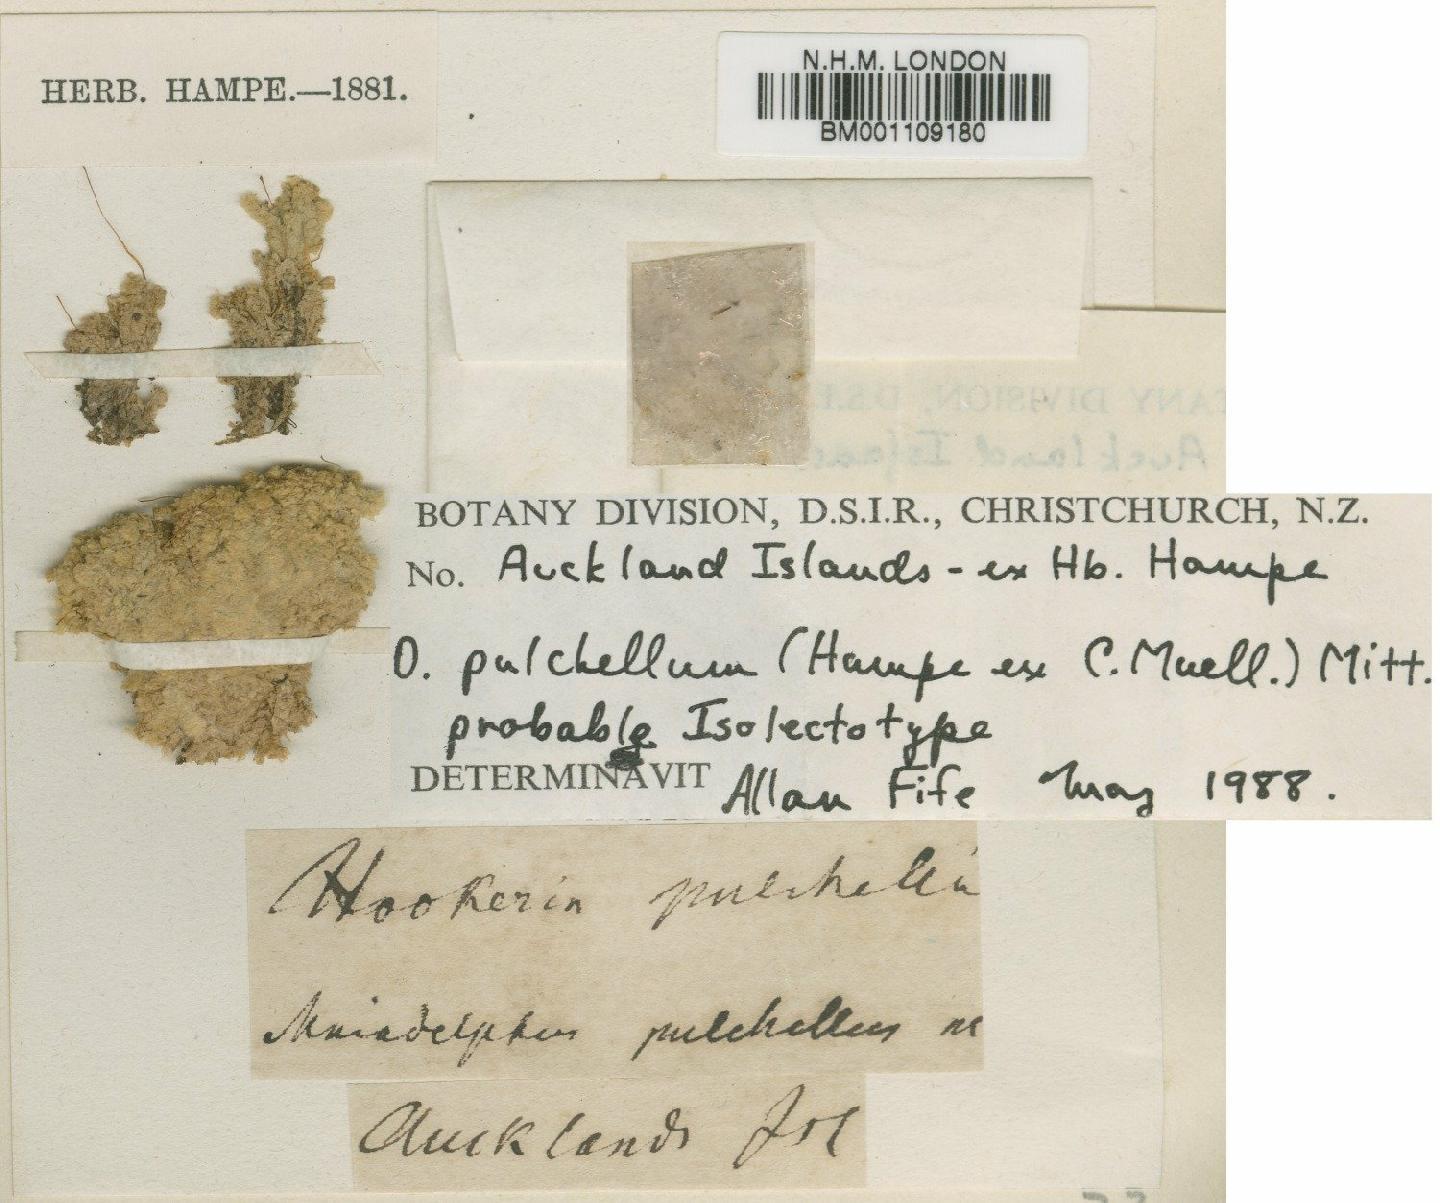 HERB. HAMPE.—1881.
N.H.M. LONDON
BM001109180
BOTANY DIVISION, D.S.I.R., CHRISTCHURCH, N.Z.
No. Auckland Islands - ex Hb. Hampe
D. pulchellum (Hampe ex C. Muell.) Mitt.
probable Isolectotype
DETERMINAVIT Allan Fife May 1988.
Hookeria pulchella
Mniadelphus pulchellus m
Aucklands Isl